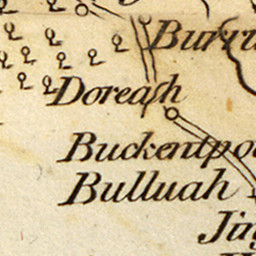 Burru
Doreash
Buckentpo
Bulluah
Jin